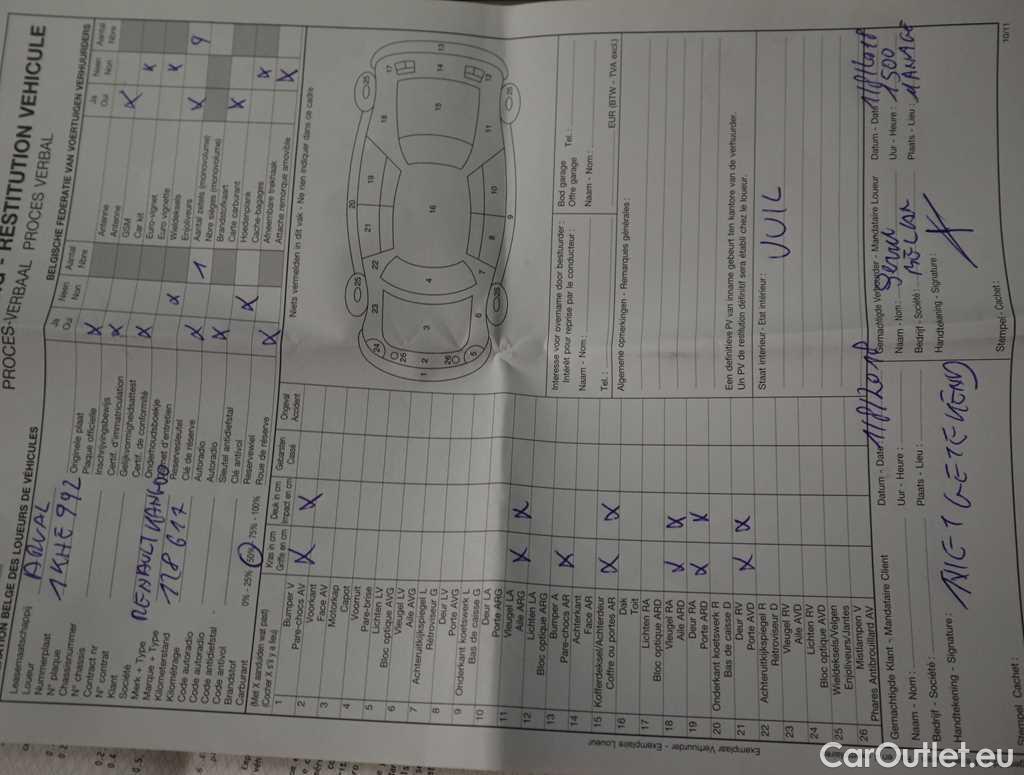 G - RESTITUTION VEHICULE
PROCÈS-VERBAAL PROCES VERBAL
BELGISCHE FEDERATIE VAN VOERTUIGEN VERHUURDERS
ATION BELGE DES LOUEURS DE VÉHICULES
Leasemaatschappij
Loueur
ARVAL
Nummerplaat
N° plaque
1KHE992
Chassisnummer
N° chassis
Contract nr
N° contrat
Klant
Société
Merk - Type
Marque - Type
RENAULT KANGOO
Kilometerstand
Kilométrage
128617
Code autoradio
Code autoradio
Code antidiefstal
Code antivol
Brandstof
Carburant
0% - 25% - 50% - 75% - 100%
Ja Neen Aantal
Oui Non Nbre
Originele plaat
Plaque officielle
Inschrijvingsbewijs
Certif. d'immatriculation
Gelijkvormigheidsattest
Certif. de conformité
Onderhoudsboekje
Carnet d'entretien
Reservesleutel
Clé de réserve
Autoradio
Autoradio
1
Sleutel antidiefstal
Clé antivol
Reservewiel
Roue de réserve
Ja Neen Aantal
Oui Non Nbre
Antenne
Antenne
GSM
Car kit
Euro-vignet
Euro vignette
Wieldeksels
Enjoliveurs
Aantal zetels (monovolume)
Nbre sièges (monovolume)
Brandstofkaart
Carte carburant
Hoedenplank
Cache-bagages
Afneembare trekhaak
Attache remorque amovible
(Met X aanduiden wat past)
(Cocher X s'il y a lieu)
Kras in cm Deuk in cm Gebarsten Ongeval
Griffe en cm Impact en cm Cassé Accident
1 Bumper V
Pare-chocs AV
2 Voorkant
Face AV
3 Motorkap
Capot
4 Voorruit
Pare-brise
5 Lichten LV
Bloc optique AVG
6 Vleugel LV
Aile AVG
7 Achteruitkijkspiegel L
Rétroviseur G
8 Deur LV
Porte AVG
9 Onderkant koetswerk L
Bas de caisse G
10 Deur LA
Porte ARG
11 Vleugel LA
Aile ARG
12 Lichten LA
Bloc optique ARG
13 Bumper A
Pare-chocs AR
14 Achterkant
Face AR
15 Kofferdeksel/Achterdeur
Coffre ou portes AR
16 Dak
Toit
17 Lichten RA
Bloc optique ARD
18 Vleugel RA
Aile ARD
19 Deur RA
Porte ARD
20 Onderkant koetswerk R
Bas de caisse D
21 Deur RV
Porte AVD
22 Achteruitkijkspiegel R
Rétroviseur D
23 Vleugel RV
Aile AVD
24 Lichten RV
Bloc optique AVD
25 Wieldeksels/Velgen
Enjoliveurs/Jantes
26 Mistlampen V
Phares Antibrouillard AV
Niets vermelden in dit vak - Ne rien indiquer dans ce cadre
Interesse voor overname door bestuurder :
Intérêt pour reprise par le conducteur :
Naam - Nom :
Tel. :
Bod garage
Offre garage
Tel. :
Naam - Nom :
EUR (BTW - TVA excl.)
Algemene opmerkingen - Remarques générales :
Een definitieve PV van inname gebeurt ten kantore van de verhuurder.
Un PV de restitution définitif sera établi chez le loueur.
Staat interieur - Etat intérieur :
VUIL
Gemachtigde Klant - Mandataire Client
Naam - Nom :
Bedrijf - Société :
Handtekening - Signature :
NIET GETEKEND
Stempel - Cachet :
Datum - Date
Uur - Heure :
Plaats - Lieu :
Gemachtigde Verhuurder - Mandataire Loueur
Naam - Nom :
Bedrijf - Société :
Handtekening - Signature :
Stempel - Cachet :
Datum - Date
Uur - Heure : 1500
Plaats - Lieu : MANAGE
Exemplaar Verhuurder - Exemplaire Loueur
10/11
CarOutlet.eu